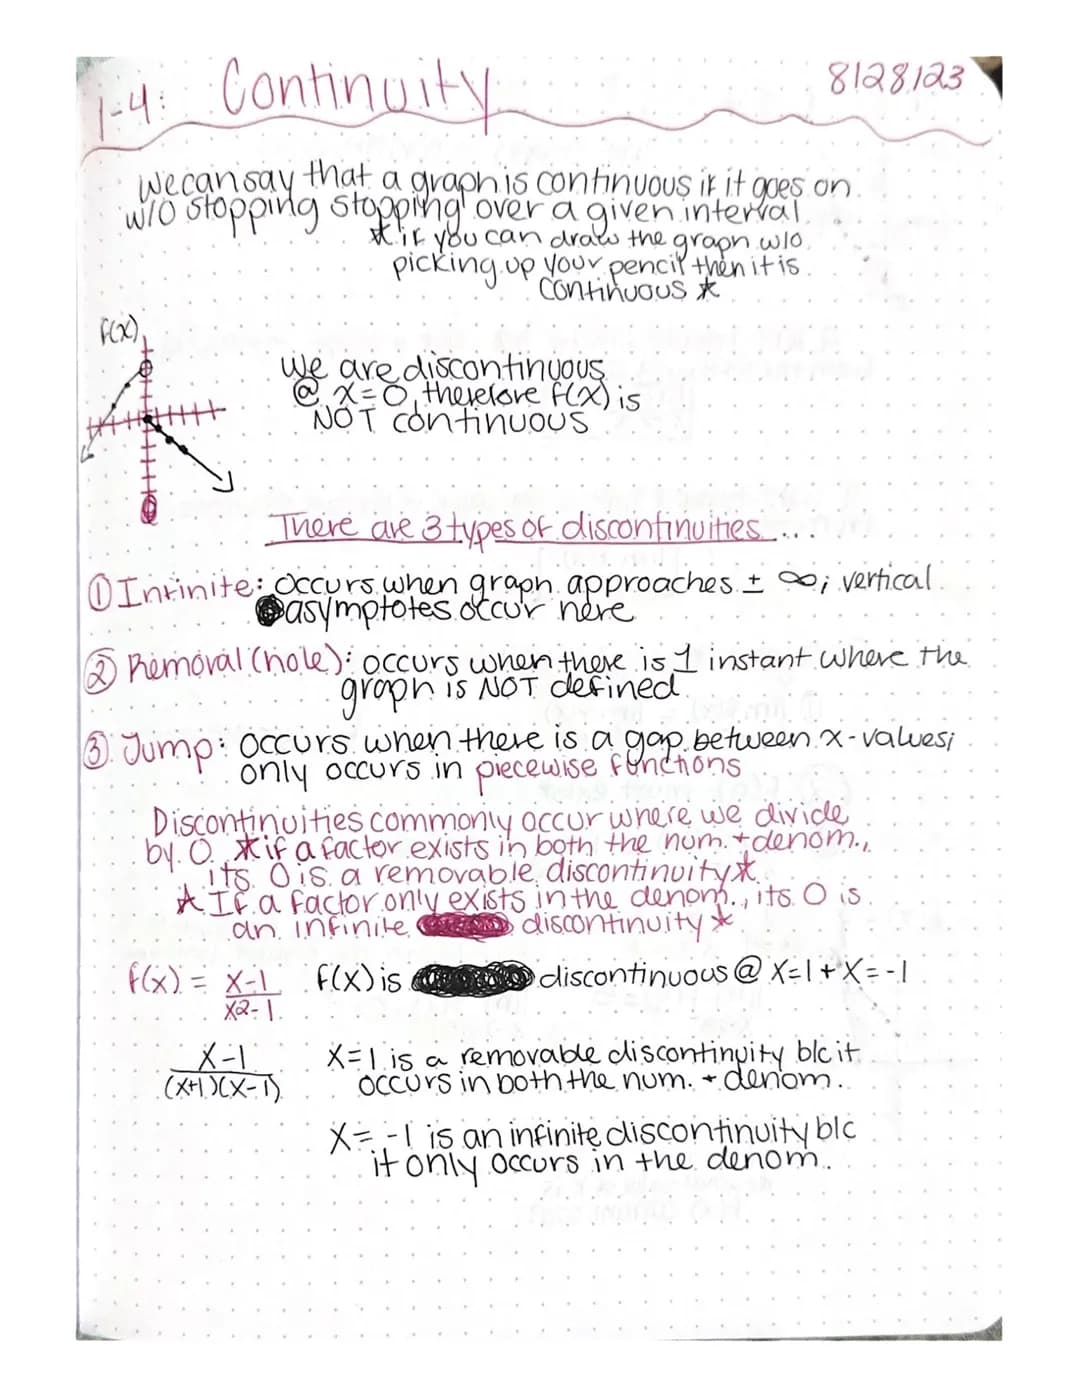 1-4: Continuity 8/28/23
We can say that a graph is continuous if it goes on
w/o stopping stopping over a given interval
*if you can draw the graph w/o
picking up your pencil then it is
continuous *
f(x)
We are discontinuous
@ x=0, therefore f(x) is
NOT continuous
There are 3 types of discontinuities....
① Infinite: occurs when graph approaches ± ∞; vertical
asymptotes occur here
② Removal (hole): occurs when there is 1 instant where the
graph is NOT defined
③ Jump: occurs when there is a gap between x-values;
only occurs in piecewise functions
Discontinuities commonly occur where we divide
by 0 *if a factor exists in both the num. + denom.,
its 0 is a removable discontinuity*
*If a factor only exists in the denom., its 0 is
an infinite discontinuity*
f(x) = x-1 f(x) is discontinuous @ x=1 + x=-1
x2-1
x-1 x=1 is a removable discontinuity b/c it
(x+1)(x-1) occurs in both the num. + denom.
x= -1 is an infinite discontinuity b/c
it only occurs in the denom..